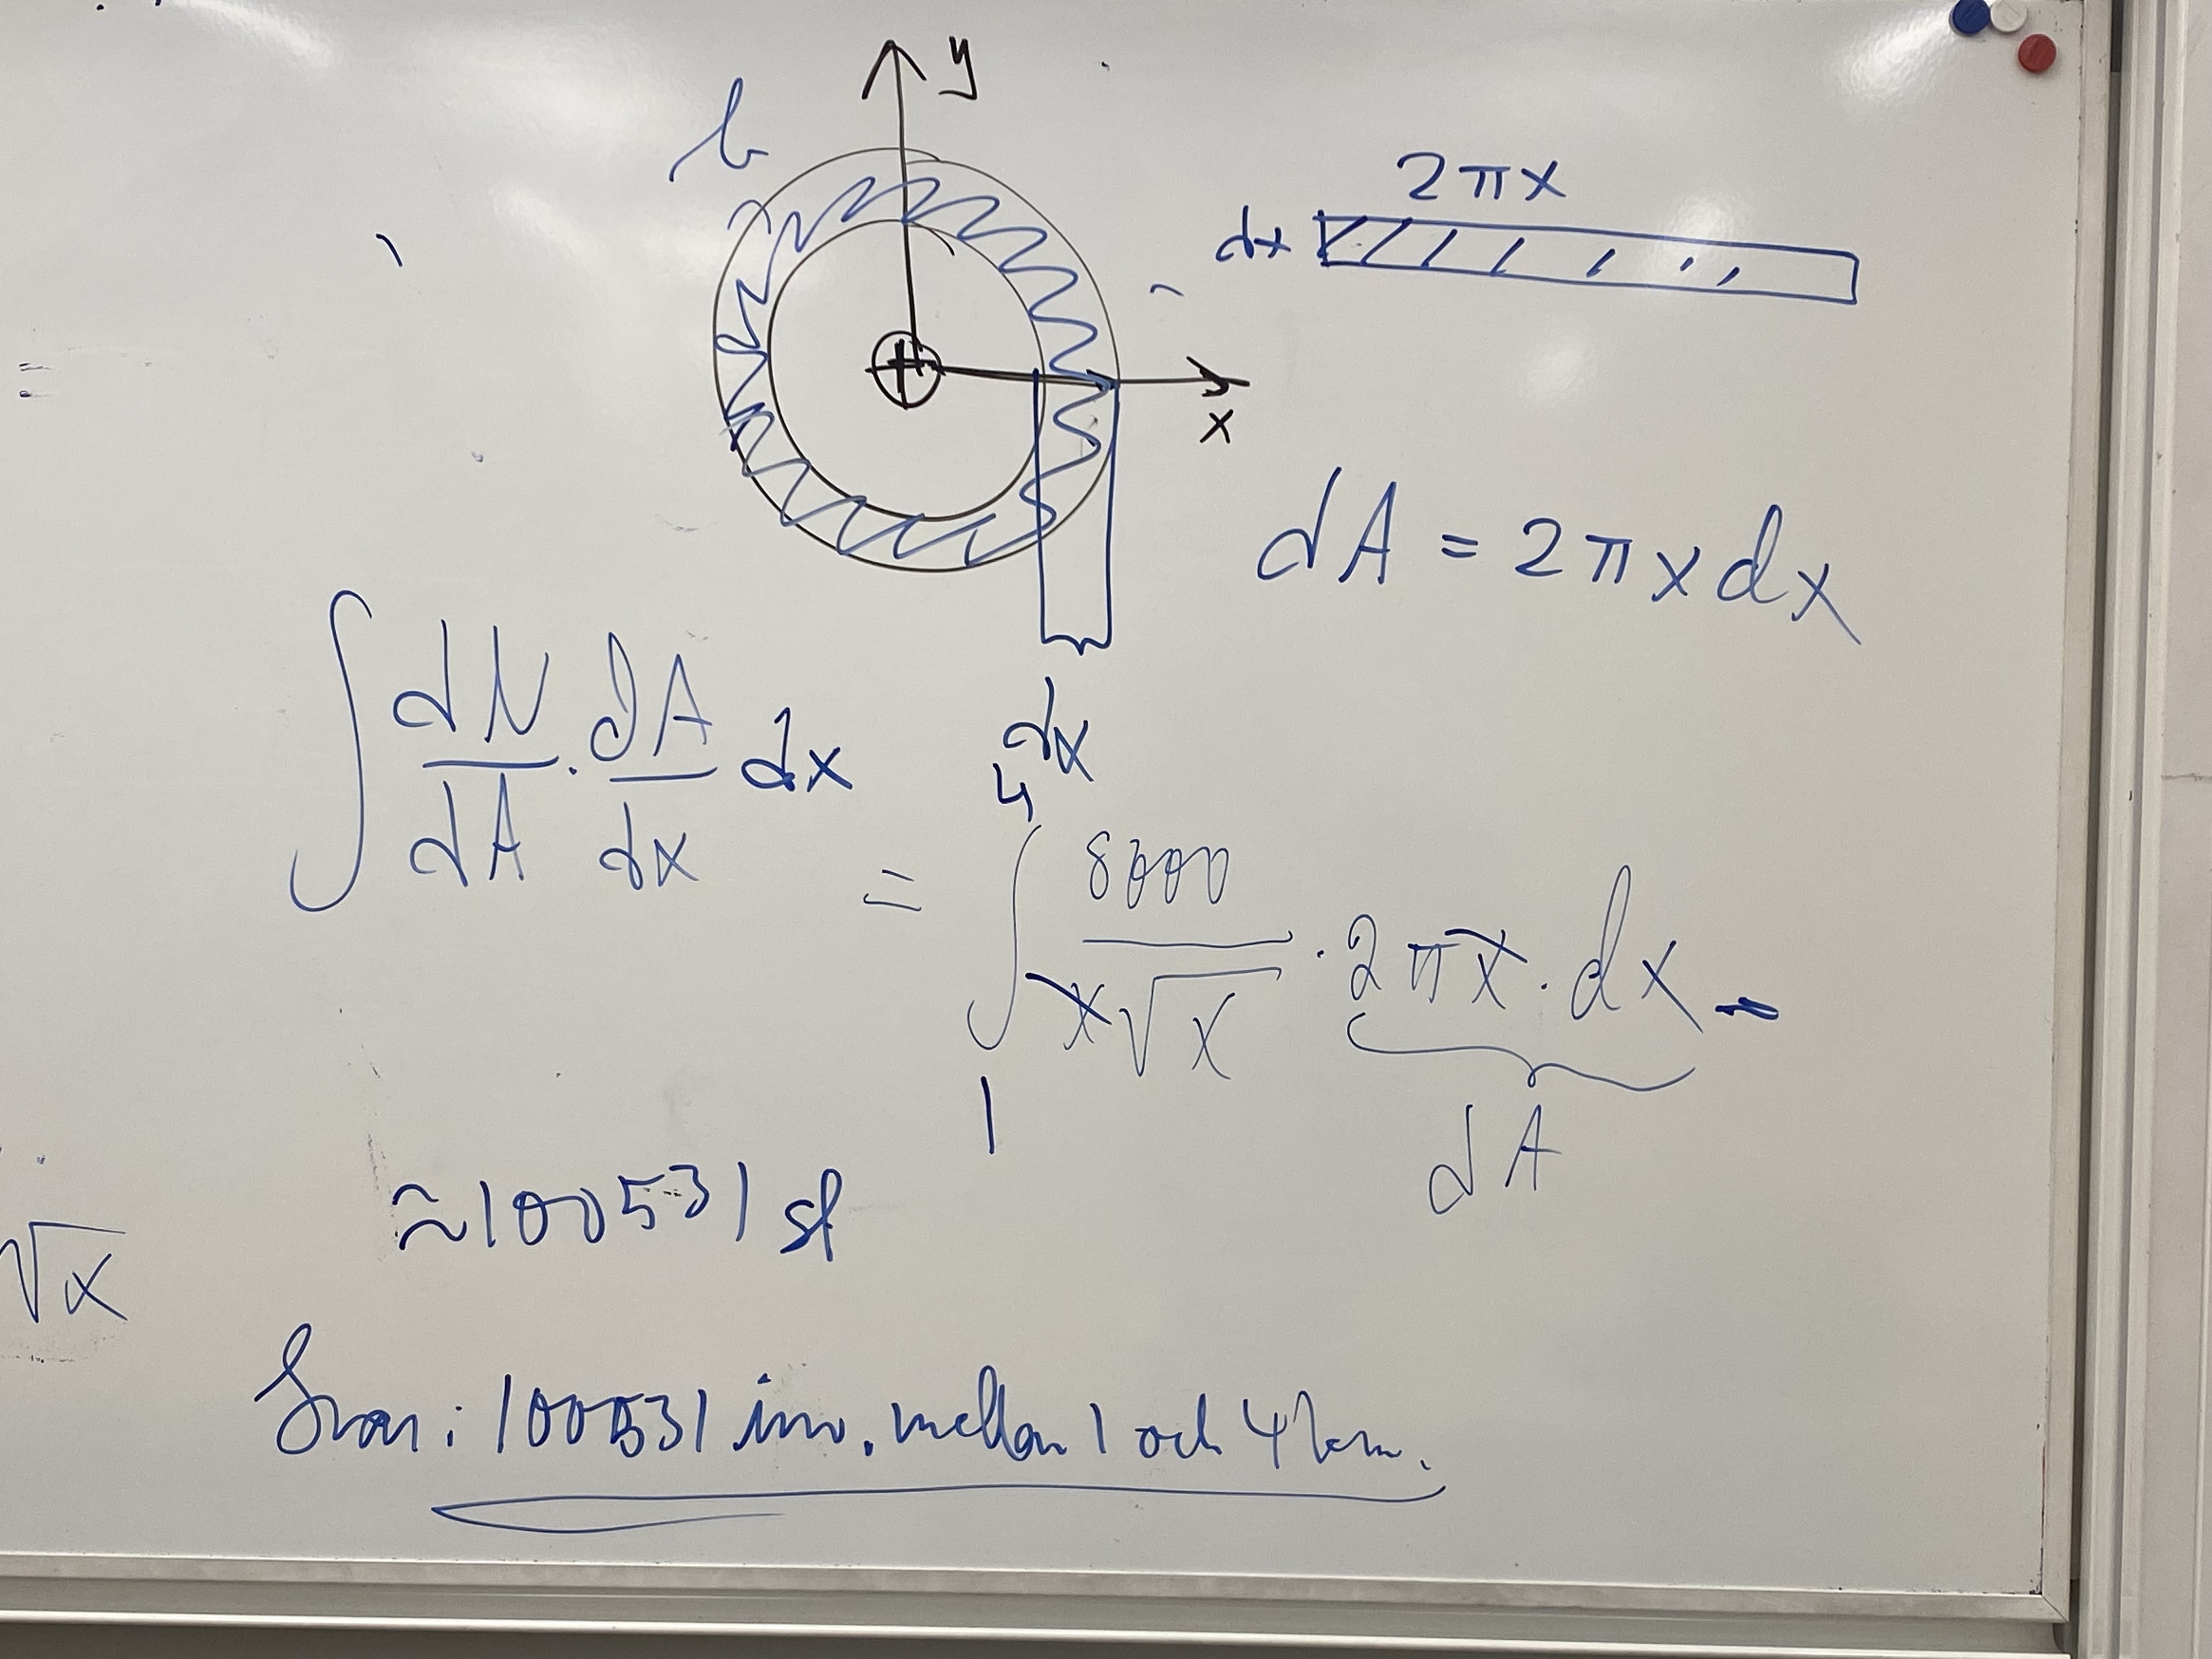 y
b
2πx
dx
x
dA = 2πx dx
dx
∫ dN/dA · dA/dx dx
= ∫₁⁴ 8000/(x√x) · 2πx · dx =
dA
≈ 100531 st
√x
Svar: 100531 inv. mellan 1 och 4 km.